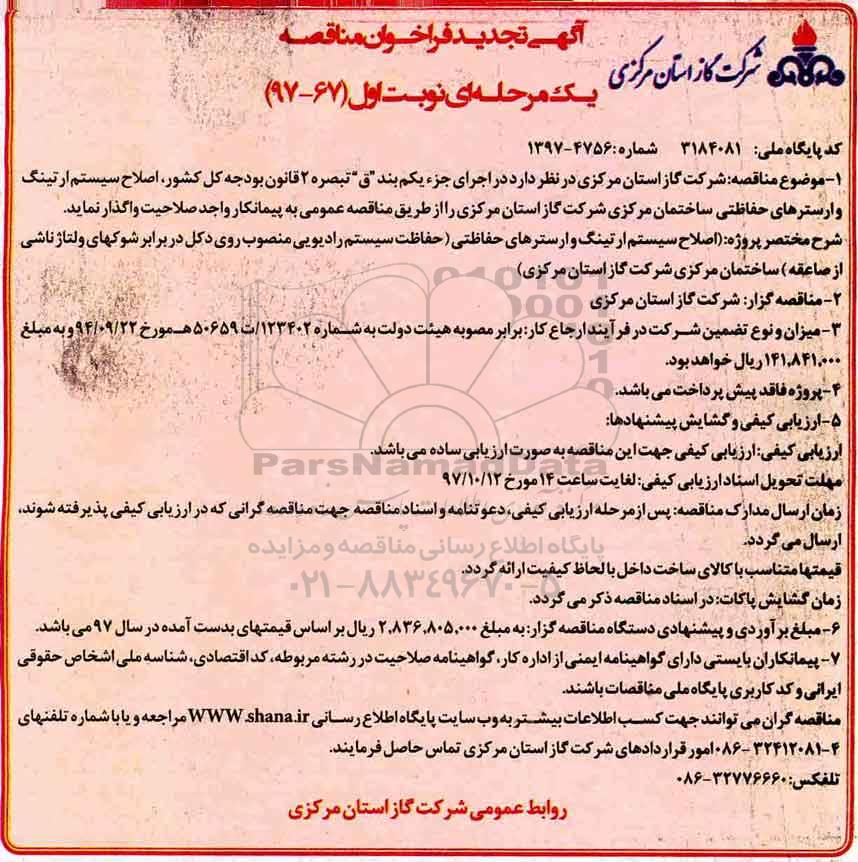 آگهی تجدید فراخوان مناقصه
شرکت گاز استان مرکزی
یک مرحله‌ای نوبت اول (۶۷-۹۷)
کد پایگاه ملی: ۳۱۸۴۰۸۱ شماره: ۴۷۵۶-۱۳۹۷
۱-موضوع مناقصه: شرکت گاز استان مرکزی در نظر دارد در اجرای جزء یکم بند "ق" تبصره ۲ قانون بودجه کل کشور، اصلاح سیستم ارتینگ
و ارسترهای حفاظتی ساختمان مرکزی شرکت گاز استان مرکزی را از طریق مناقصه عمومی به پیمانکار واجد صلاحیت واگذار نماید.
شرح مختصر پروژه: (اصلاح سیستم ارتینگ و ارسترهای حفاظتی (حفاظت سیستم رادیویی منصوب روی دکل در برابر شوکهای ولتاژ ناشی
از صاعقه) ساختمان مرکزی شرکت گاز استان مرکزی)
۲-مناقصه گزار: شرکت گاز استان مرکزی
۳-میزان و نوع تضمین شرکت در فرآیند ارجاع کار: برابر مصوبه هیئت دولت به شماره ۱۲۳۴۰۲/ت ۵۰۶۵۹ هـ مورخ ۹۴/۰۹/۲۲ و به مبلغ
۱۴۱,۸۴۱,۰۰۰ ریال خواهد بود.
۴-پروژه فاقد پیش پرداخت می باشد.
۵-ارزیابی کیفی و گشایش پیشنهادها:
ارزیابی کیفی: ارزیابی کیفی جهت این مناقصه به صورت ارزیابی ساده می باشد.
ParsNamadData
مهلت تحویل اسناد ارزیابی کیفی: لغایت ساعت ۱۴ مورخ ۹۷/۱۰/۱۲
زمان ارسال مدارک مناقصه: پس از مرحله ارزیابی کیفی، دعوتنامه و اسناد مناقصه جهت مناقصه گرانی که در ارزیابی کیفی پذیرفته شوند،
ارسال می گردد.
پایگاه اطلاع رسانی مناقصه و مزایده
قیمتها متناسب با کالای ساخت داخل با لحاظ کیفیت ارائه گردد.
۰۲۱-۸۸۳۴۹۶۷۰-۵
زمان گشایش پاکات: در اسناد مناقصه ذکر می گردد.
۶-مبلغ برآوردی و پیشنهادی دستگاه مناقصه گزار: به مبلغ ۲,۸۳۶,۸۰۵,۰۰۰ ریال بر اساس قیمتهای بدست آمده در سال ۹۷ می باشد.
۷-پیمانکاران بایستی دارای گواهینامه ایمنی از اداره کار، گواهینامه صلاحیت در رشته مربوطه، کد اقتصادی، شناسه ملی اشخاص حقوقی
ایرانی و کد کاربری پایگاه ملی مناقصات باشند.
مناقصه گران می توانند جهت کسب اطلاعات بیشتر به وب سایت پایگاه اطلاع رسانی WWW.shana.ir مراجعه و یا با شماره تلفنهای
۴-۳۲۴۱۲۰۸۱-۰۸۶ امور قراردادهای شرکت گاز استان مرکزی تماس حاصل فرمایند.
تلفکس: ۳۲۷۷۶۶۶۰-۰۸۶
روابط عمومی شرکت گاز استان مرکزی